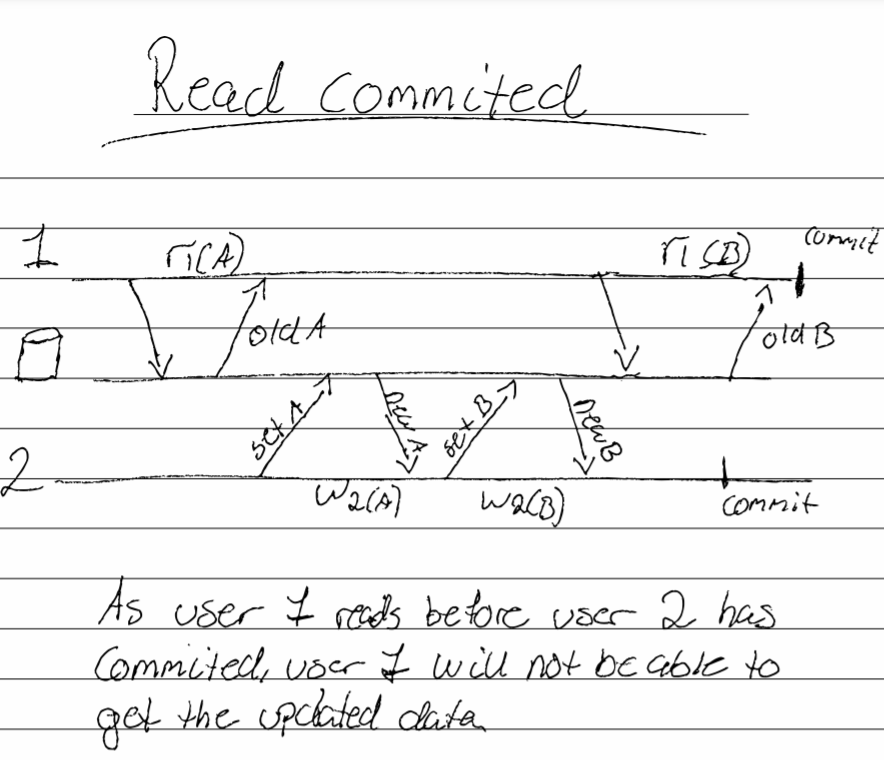 Read Commited
1
r1(A)
r1(B)
Commit
old A
old B
set A
new A
set B
new B
2
W2(A)
W2(B)
Commit
As user 1 reads before user 2 has
Commited, user 1 will not be able to
get the updated data